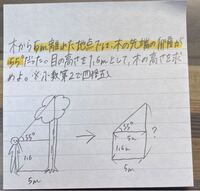 木から5m離れた地点では、木の先端の仰角が
55°だった。目の高さを1.6mとして、木の高さを求
めよ。※小数第2で四捨五入
55°
1.6
5m
55°
5m
1.6m
5m
?